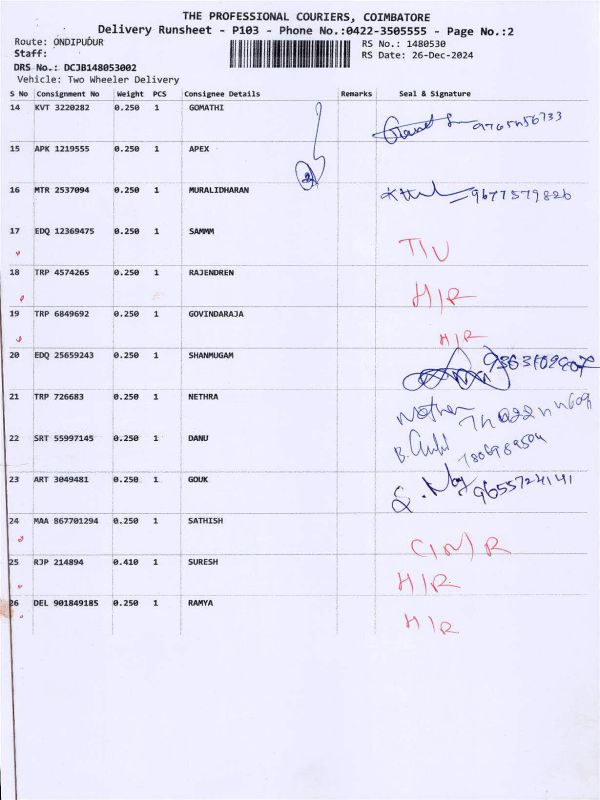 THE PROFESSIONAL COURIERS, COIMBATORE
Delivery Runsheet - P103 - Phone No.:0422-3505555 - Page No.:2
Route: ONDIPUDUR
RS No.: 1480530
Staff:
RS Date: 26-Dec-2024
DRS No.: DCJB148053002
Vehicle: Two Wheeler Delivery
S No Consignment No Weight PCS Consignee Details Remarks Seal & Signature
14 KVT 3220282 0.250 1 GOMATHI
15 APK 1219555 0.250 1 APEX
16 MTR 2537094 0.250 1 MURALIDHARAN 9677579826
17 EDQ 12369475 0.250 1 SAMMM
18 TRP 4574265 0.250 1 RAJENDREN H/R
19 TRP 6849692 0.250 1 GOVINDARAJA H/R
20 EDQ 25659243 0.250 1 SHANMUGAM
21 TRP 726683 0.250 1 NETHRA
22 SRT 55997145 0.250 1 DANU
23 ART 3049481 0.250 1 GOUK 9655724141
24 MAA 867701294 0.250 1 SATHISH
25 RJP 214894 0.410 1 SURESH H/R
26 DEL 901849185 0.250 1 RAMYA H/R